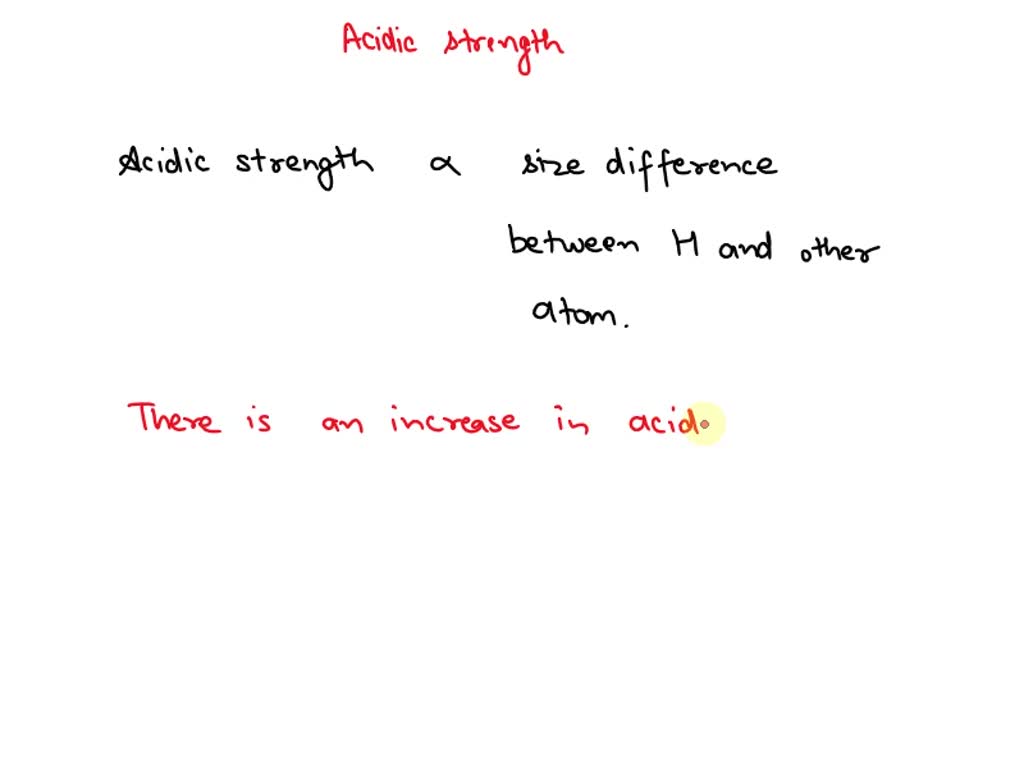 Acidic strength
Acidic strength ∝ size difference
between H and other
atom.
There is an increase in acid